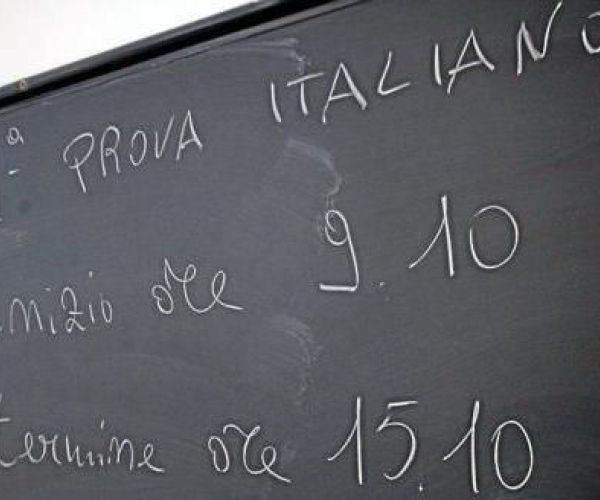 ª PROVA ITALIANO
inizio ore 9.10
termine ore 15.10